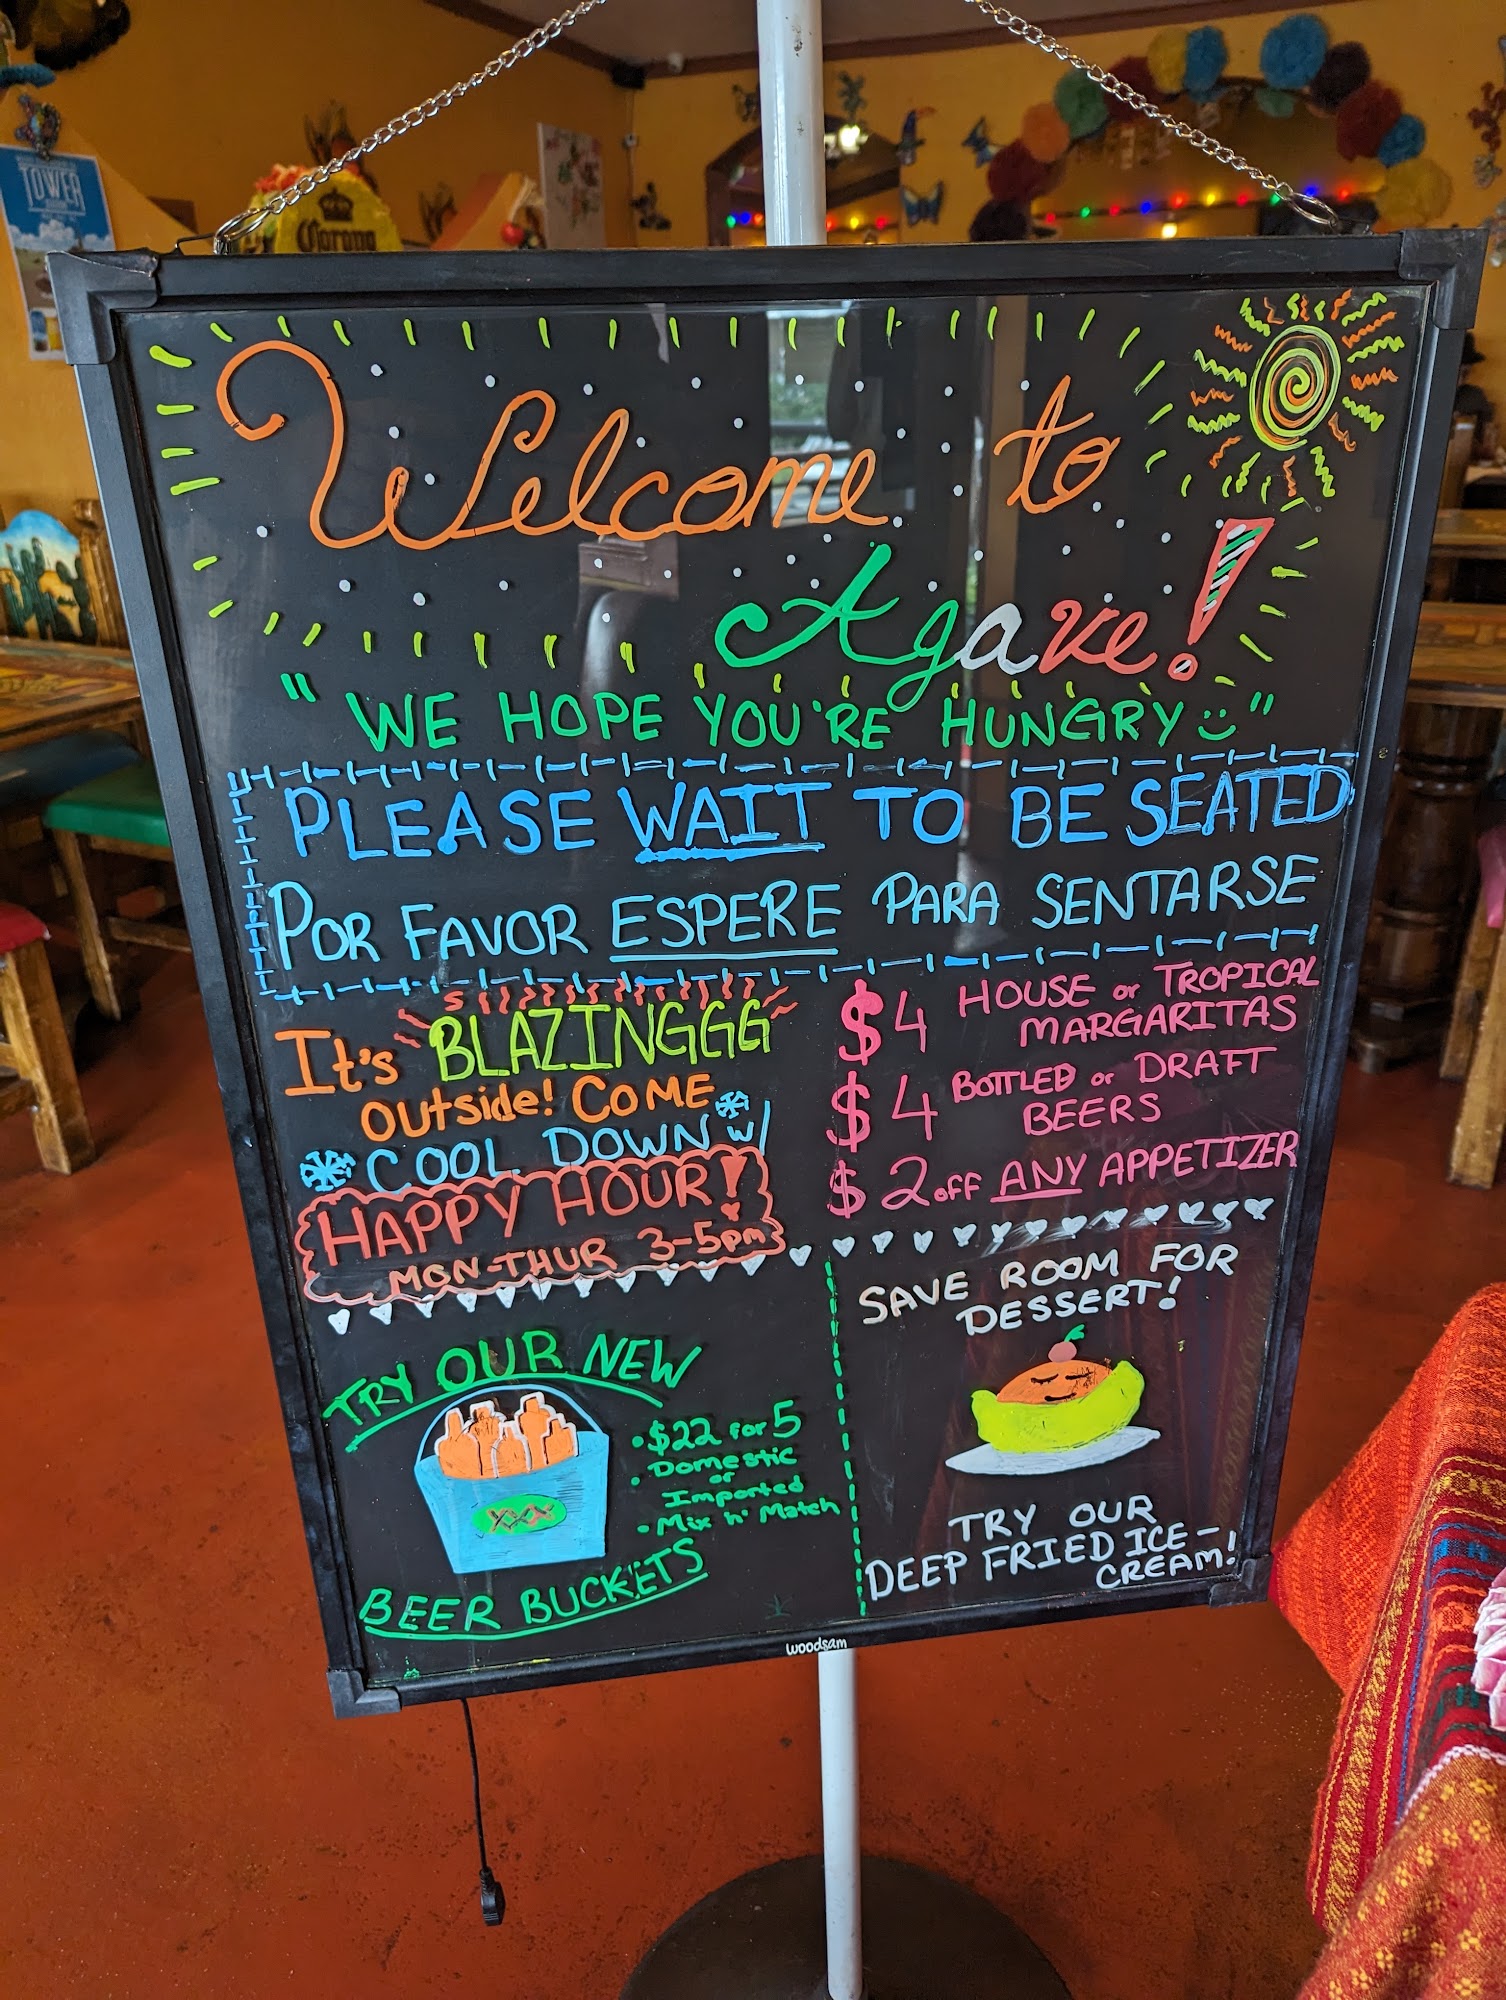 TOWER
Corona
Welcome to
Agave!
"WE HOPE YOU'RE HUNGRY"
PLEASE WAIT TO BE SEATED
POR FAVOR ESPERE PARA SENTARSE
It's BLAZINGGG
outside! COME
COOL DOWN w/
HAPPY HOUR!
MON-THUR 3-5pm
$4 HOUSE or TROPICAL
MARGARITAS
$4 BOTTLED or DRAFT
BEERS
$2 off ANY APPETIZER
TRY OUR NEW
XXX
• $22 for 5
• Domestic
or
Imported
• Mix n' Match
BEER BUCKETS
SAVE ROOM FOR
DESSERT!
TRY OUR
DEEP FRIED ICE-
CREAM!
woodsam